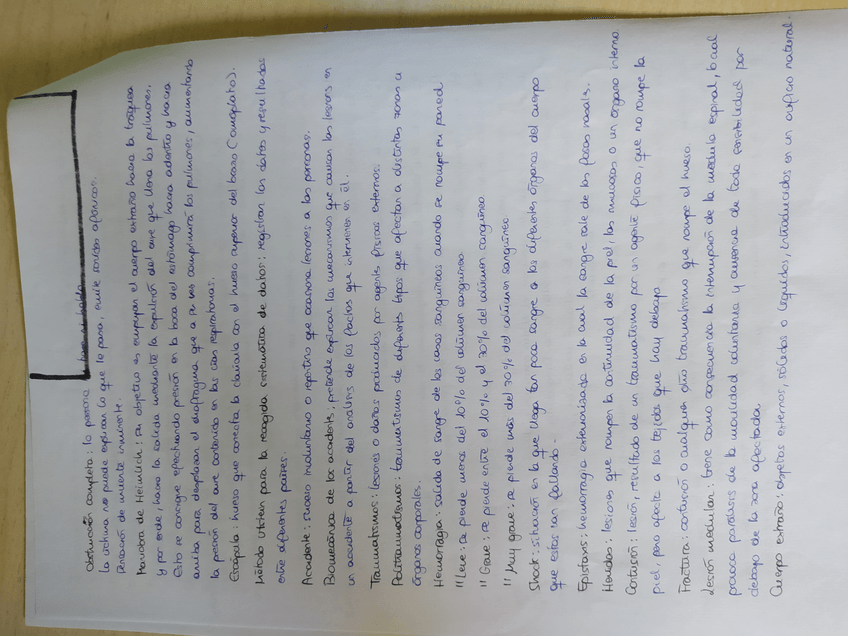 Obstrucción completa: la persona tose ni habla
la víctima no puede explicar lo que le pasa, emite sonidos afónicos.
Sensación de muerte inminente.
Maniobra de Heimlich: su objetivo es empujar el cuerpo extraño hacia la tráquea
y por ende, hacia la salida mediante la expulsión del aire que llena los pulmones.
Esto se consigue efectuando presión en la boca del estómago hacia adentro y hacia
arriba para desplazar el diafragma que a su vez comprimirá los pulmones, aumentando
la presión del aire contenido en las vías respiratorias.
Escápula: hueso que conecta la clavícula con el hueso superior del brazo (omóplato).
Método Utstein para la recogida sistemática de datos: registran los datos y resultados
entre diferentes países.
Accidente: suceso involuntario o repentino que ocasiona lesiones a las personas.
Biomecánica de los accidente: pretende explicar los mecanismos que causan las lesiones en
un accidente a partir del análisis de los factores que intervienen en él.
Traumatismos: lesiones o daños producidos por agentes físicos externos.
Politraumatismos: traumatismos de diferentes tipos que afectan a distintas zonas u
órganos corporales.
Hemorragia: salida de sangre de los vasos sanguíneos cuando se rompe su pared
" Leve: se pierde menos del 10% del volumen sanguíneo
" Grave: se pierde entre el 10% y el 30% del volumen sanguíneo
" Muy grave: se pierde más del 30% del volumen sanguíneo.
Shock: situación en la que llega tan poca sangre a los diferentes órganos del cuerpo
que estos van fallando.
Epistaxis: hemorragia exteriorizada en la cual la sangre sale de las fosas nasales.
Heridas: lesiones que rompen la continuidad de la piel, las mucosas o un órgano interno
Contusión: lesión, resultado de un traumatismo por un agente físico, que no rompe la
piel, pero afecta a los tejidos que hay debajo.
Fractura: contusión o cualquier otro traumatismo que rompe el hueso.
Lesión medular: tiene como consecuencia la interrupción de la médula espinal, lo cual
provoca parálisis de la movilidad voluntaria y ausencia de toda sensibilidad por
debajo de la zona afectada.
Cuerpo extraño: objetos externos, sólidos o líquidos, introducidos en un orificio natural.